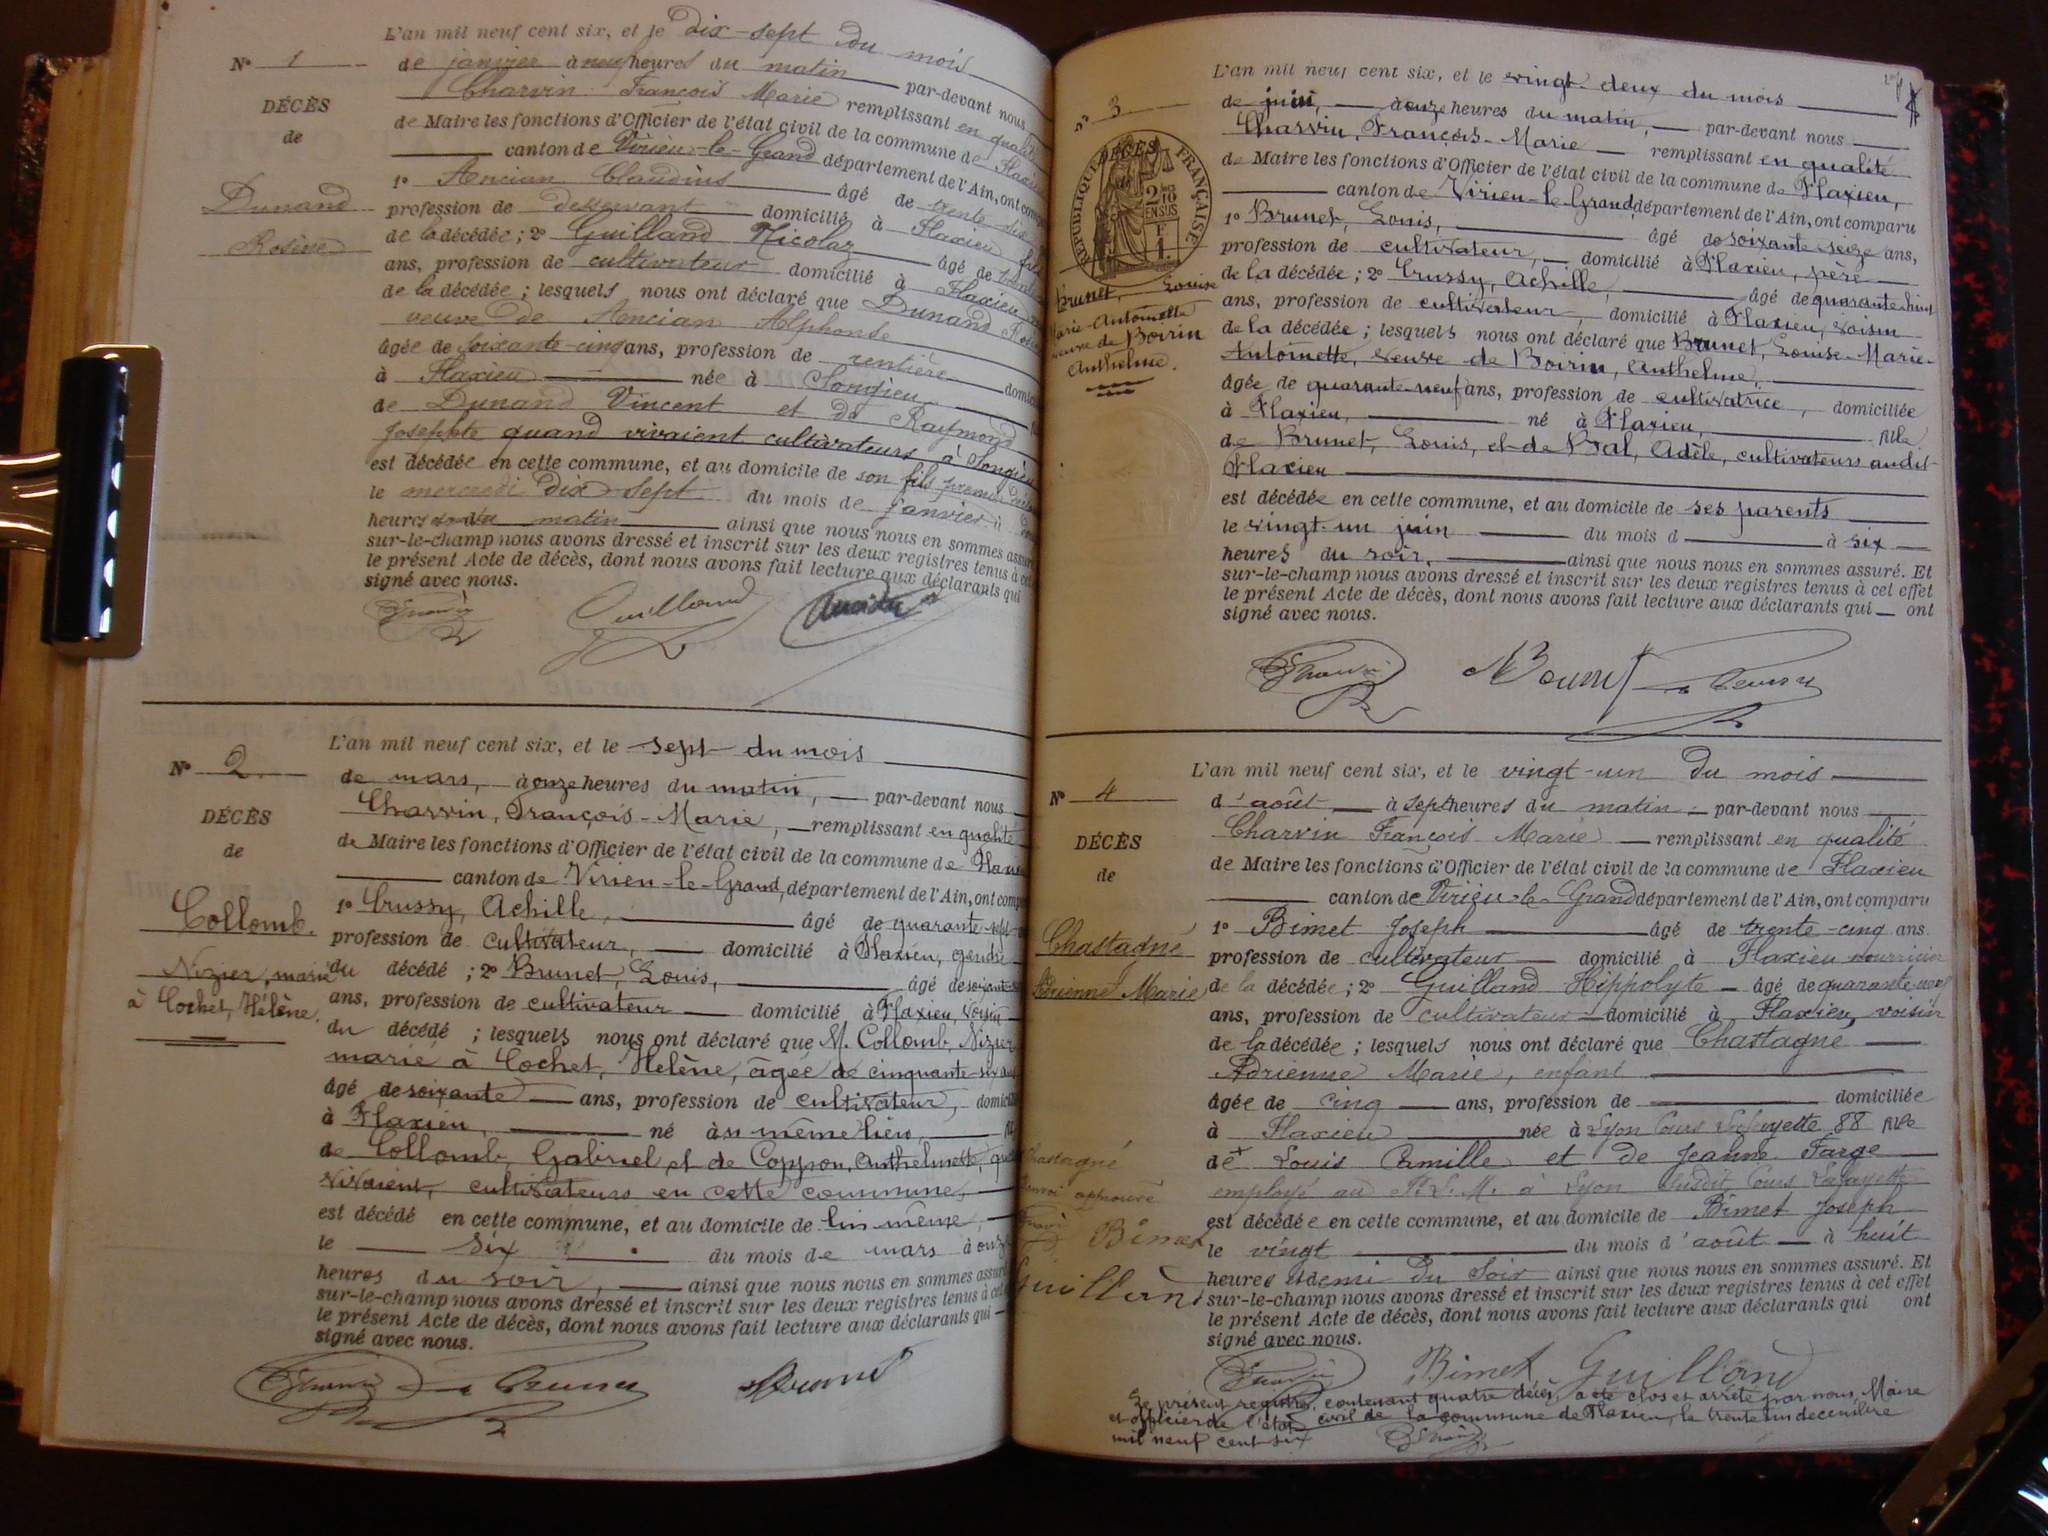 N° 1
DÉCÈS
de
Dunand
Rosine
L'an mil neuf cent six, et le Dix-sept du mois
de janvier à neuf heures du matin par-devant nous
Charvin François Marie remplissant en qualité
de Maire les fonctions d'Officier de l'état civil de la commune de Flaxieu
canton de Virieu-le-Grand département de l'Ain, ont comparu
1° Ancian Claudius âgé de trente six
profession de desservant domicilié à Flaxieu fils
de la décédée ; 2° Guilland Nicolas âgé de
ans, profession de cultivateur domicilié à Flaxieu
de la décédée ; lesquels nous ont déclaré que Dunand Rosine
veuve de Ancian Alphonse
âgée de soixante-cinq ans, profession de rentière
à Flaxieu née à Songieu
de Dunand Vincent et de Raymond
Josephte quand vivaient cultivateurs à Songieu
est décédée en cette commune, et au domicile de son fils premier
le mercredi dix sept du mois de janvier à
heures du matin ainsi que nous nous en sommes assuré
sur-le-champ nous avons dressé et inscrit sur les deux registres tenus à cet
le présent Acte de décès, dont nous avons fait lecture aux déclarants qui
signé avec nous.
Charvin Guilland Ancian
N° 2
DÉCÈS
de
Collomb.
Nizier, marié
à Cochet, Hélène.
L'an mil neuf cent six, et le sept du mois
de mars, à onze heures du matin, par-devant nous
Charvin, François-Marie, remplissant en qualité
de Maire les fonctions d'Officier de l'état civil de la commune de Flaxieu
canton de Virieu-le-Grand, département de l'Ain, ont comparu
1° Crussy, Achille, âgé de quarante-sept
profession de cultivateur, domicilié à Flaxieu, gendre
du décédé ; 2° Brunet, Louis, âgé de soixante
ans, profession de cultivateur domicilié à Flaxieu, voisin
du décédé ; lesquels nous ont déclaré que M. Collomb, Nizier
marié à Cochet, Helène, âgée de cinquante-six ans
âgé de soixante ans, profession de cultivateur, domicilié
à Flaxieu, né au même lieu,
de Collomb Gabriel et de Coppon, Anthelmette,
vivaient, cultivateurs en cette commune,
est décédé en cette commune, et au domicile de lui même,
le six du mois de mars à onze
heures du soir, ainsi que nous nous en sommes assuré
sur-le-champ nous avons dressé et inscrit sur les deux registres tenus à cet
le présent Acte de décès, dont nous avons fait lecture aux déclarants qui
signé avec nous.
Charvin Crussy Brunet
N° 3
DÉCÈS
RÉPUBLIQUE FRANÇAISE
2/10 EN SUS
Brunet, Louise
Marie-Antoinette
veuve de Boirin
Anthelme.
L'an mil neuf cent six, et le vingt-deux du mois
de juin, à onze heures du matin, par-devant nous
Charvin, François-Marie remplissant en qualité
de Maire les fonctions d'Officier de l'état civil de la commune de Flaxieu,
canton de Virieu-le-Grand, département de l'Ain, ont comparu
1° Brunet, Louis, âgé de soixante-seize ans,
profession de cultivateur, domicilié à Flaxieu, père
de la décédée ; 2° Crussy, Achille, âgé de quarante-huit
ans, profession de cultivateur, domicilié à Flaxieu, voisin
de la décédée ; lesquels nous ont déclaré que Brunet, Louise-Marie-
Antoinette, veuve de Boirin, Anthelme,
âgée de quarante-neuf ans, profession de cultivatrice, domiciliée
à Flaxieu, né à Flaxieu, fille
de Brunet, Louis, et de Bal, Adèle, cultivateurs audit
Flaxieu
est décédée en cette commune, et au domicile de ses parents
le vingt-un juin du mois d à six
heures du soir, ainsi que nous nous en sommes assuré. Et
sur-le-champ nous avons dressé et inscrit sur les deux registres tenus à cet effet
le présent Acte de décès, dont nous avons fait lecture aux déclarants qui ont
signé avec nous.
Charvin Brunet Crussy
N° 4
DÉCÈS
de
Chastagné
Adrienne Marie
L'an mil neuf cent six, et le vingt-un du mois
d'août à sept heures du matin par-devant nous
Charvin François Marie remplissant en qualité
de Maire les fonctions d'Officier de l'état civil de la commune de Flaxieu
canton de Virieu-le-Grand département de l'Ain, ont comparu
1° Bimet Joseph âgé de trente-cinq ans.
profession de cultivateur domicilié à Flaxieu nourricier
de la décédée ; 2° Guilland Hippolyte âgé de quarante-neuf
ans, profession de cultivateur domicilié à Flaxieu, voisin
de la décédée ; lesquels nous ont déclaré que Chastagné
Adrienne Marie, enfant
âgée de cinq ans, profession de domiciliée
à Flaxieu née à Lyon Cours Lafayette 88 fille
de + Louis Camille et de Jeanne Farge
employé au P.L.M. à Lyon susdit Cours Lafayette
est décédée en cette commune, et au domicile de Bimet Joseph
le vingt du mois d'août à huit
heures et demi du soir ainsi que nous nous en sommes assuré. Et
sur-le-champ nous avons dressé et inscrit sur les deux registres tenus à cet effet
le présent Acte de décès, dont nous avons fait lecture aux déclarants qui ont
signé avec nous.
+ Chastagné
Renvoi approuvé
Charvin
Bimet
Guilland
Charvin Bimet Guilland
Le présent registre, contenant quatre décès, a été clos et arrêté par nous, Maire
et officier de l'état civil de la commune de Flaxieu, le trente un decembre
mil neuf cent six
Charvin